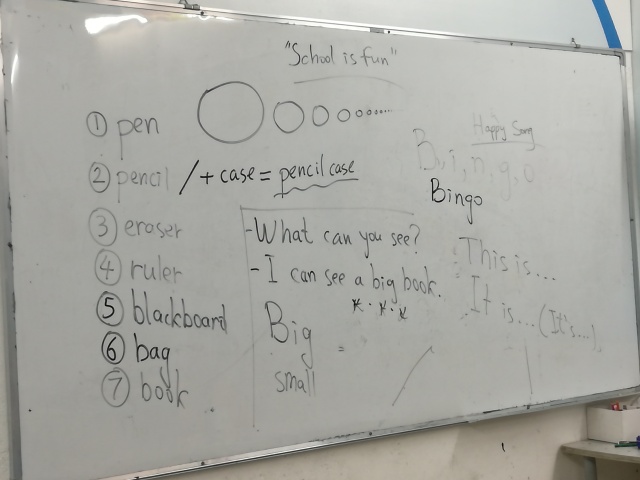 "School is fun"
① pen
② pencil / + case = pencil case
③ eroser
④ ruler
⑤ blackboard
⑥ bag
⑦ book
- What can you see?
- I can see a big book.
Big
small
Happy Song
B, i, n, g, o
Bingo
This is...
It is... (It's....)